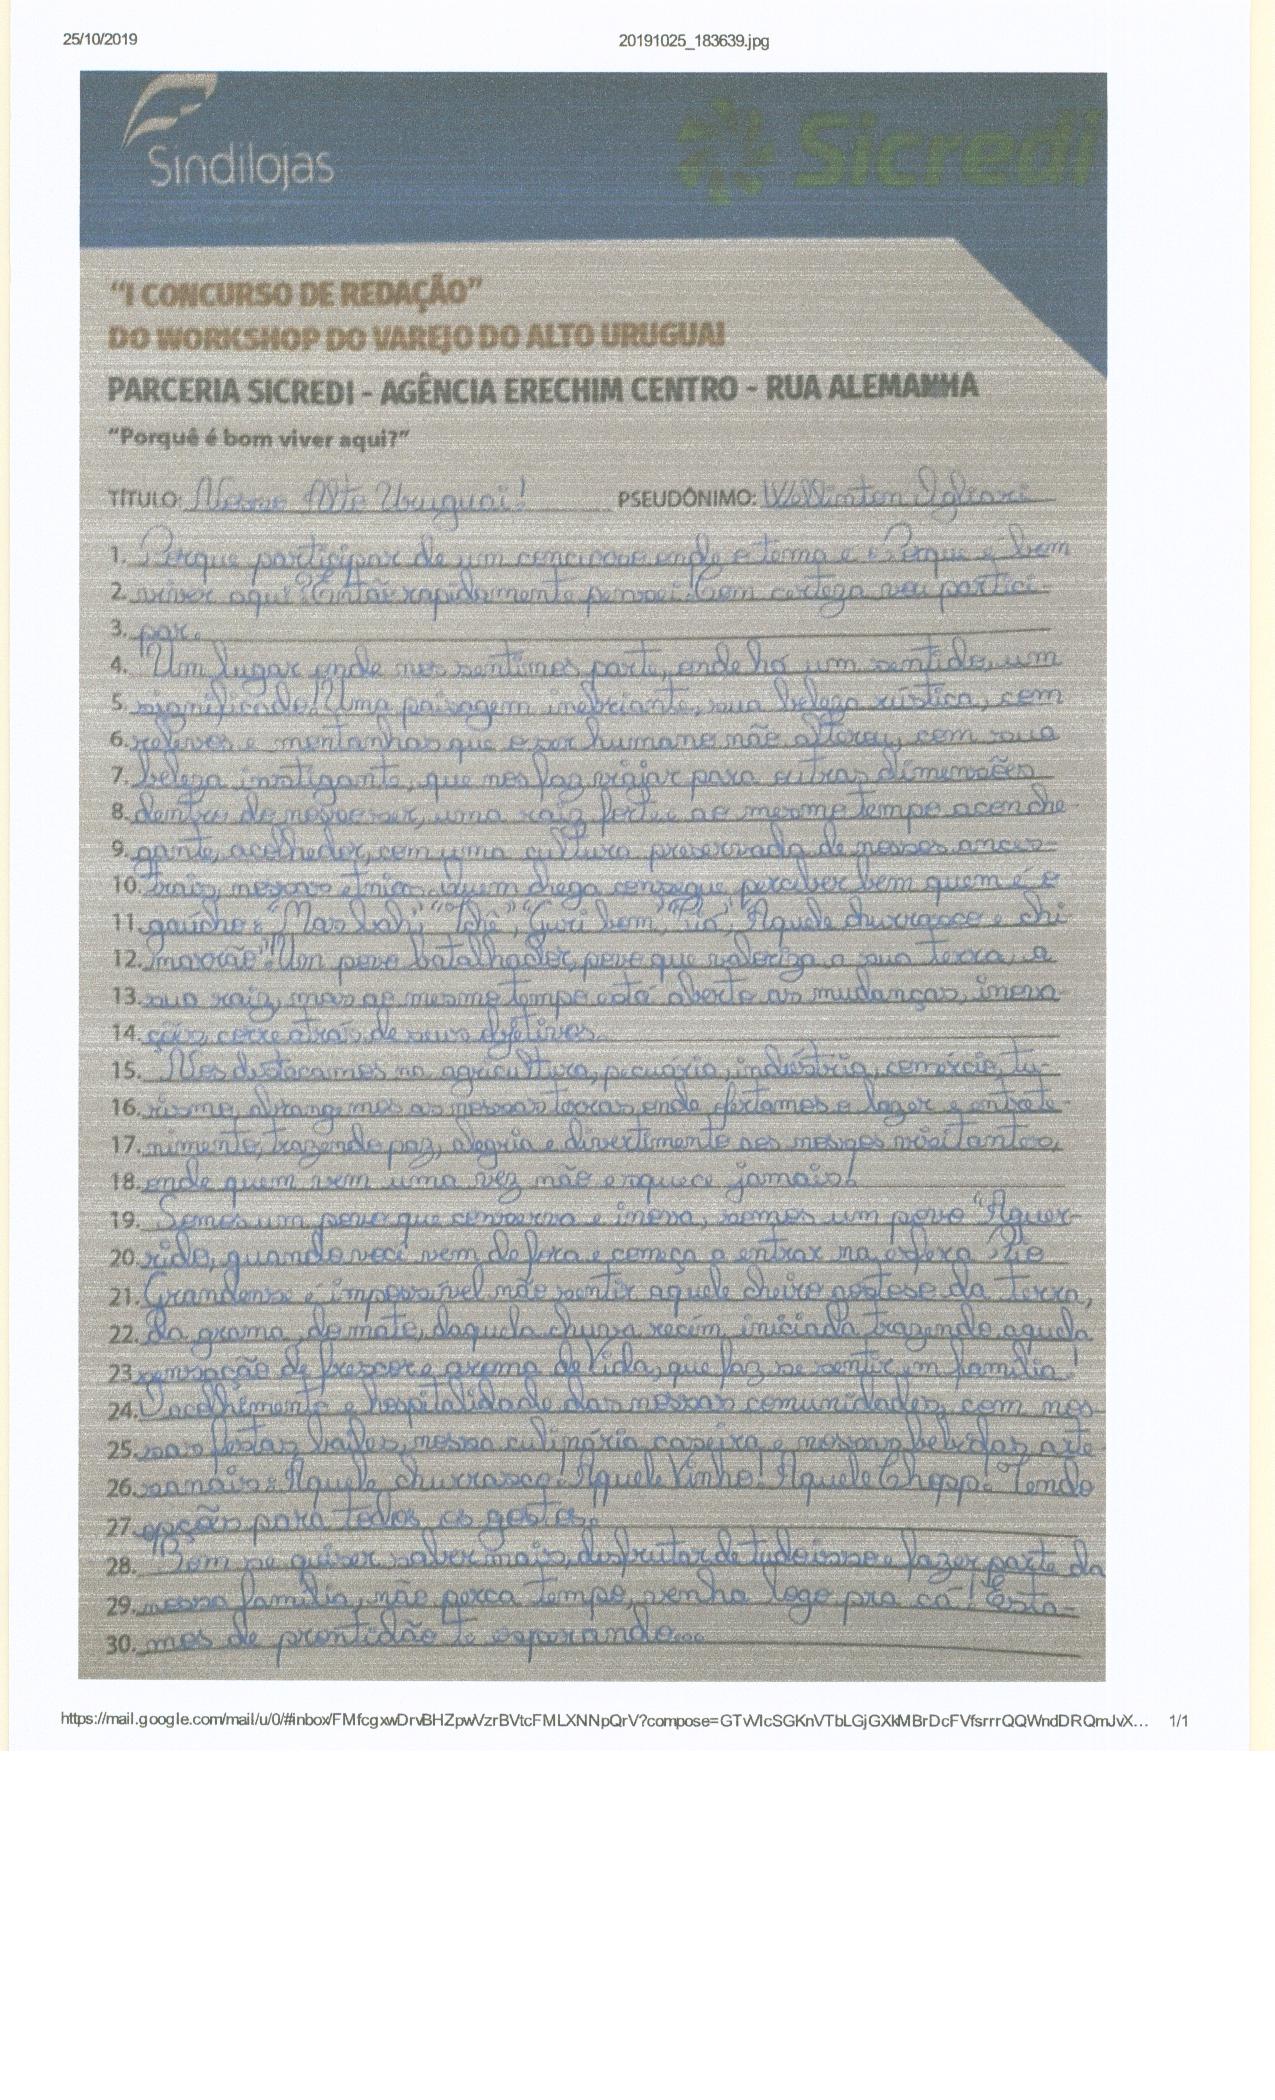 25/10/2019 20191025_183639.jpg
Sindilojas
Sicredi
"I CONCURSO DE REDAÇÃO"
DO WORKSHOP DO VAREJO DO ALTO URUGUAI
PARCERIA SICREDI - AGÊNCIA ERECHIM CENTRO - RUA ALEMANHA
"Porquê é bom viver aqui?"
TÍTULO: Nosso Alto Uruguai! PSEUDÔNIMO: Wellinton Ogliari
1. Porque participar de um concurso onde o tema e "Porque é bom
2. viver aqui"? Então rapidamente pensei! Com certeza vou partici-
3. par.
4. Um lugar onde nos sentimos parte, onde há um sentido, um
5. significado! Uma paisagem inebriante, sua beleza rústica, com
6. relevos e montanhas que o ser humano não alterou, com sua
7. beleza instigante, que nos faz viajar para outras dimensões
8. dentro do nosso ser, uma raiz forte e ao mesmo tempo aconche-
9. gante, acolhedor, com uma cultura preservada de nossos ances-
10. trais, nossas etnias. Quem chega consegue perceber bem quem é o
11. gaúcho: "Mas bah", "Tchê", "Guri bom", "Tio", "Aquele churrasco e chi
12. marrão". Um povo batalhador, povo que valoriza a sua terra, a
13. sua raiz, mas ao mesmo tempo está aberto as mudanças, inova-
14. ções, corre atrás de seus objetivos.
15. Nos destacamos na agricultura, pecuária, indústria, comércio, tu-
16. rismo, abrangemos as nossas terras onde ofertamos o lazer e entrete-
17. nimento, trazendo paz, alegria e divertimento aos nossos visitantes,
18. onde quem vem uma vez não esquece jamais!
19. Somos um povo que conserva e inova, somos um povo "Aguer-
20. rido, quando você vem de fora e começa a entrar na esfera Rio
21. Grandense é impossível não sentir aquele cheiro gostoso da terra,
22. da grama, do mato, daquela chuva recém iniciada trazendo aquela
23. sensação de frescor e aroma de Vida, que faz se sentir em família!
24. O acolhimento e hospitalidade das nossas comunidades, com nos-
25. sas festas, bailes, nossa culinária caseira e nossas bebidas arte
26. sanais: Aquele churrasco! Aquele Vinho! Aquele Chopp! Tendo
27. opções para todos os gostos.
28. Bom se quiser saber mais, desfrutar de tudo isso e fazer parte da
29. nossa família, não perca tempo, venha logo pra cá! Esta-
30. mos de prontidão te esperando...
https://mail.google.com/mail/u/0/#inbox/FMfcgxwDrvBHZpwVzrBVtcFMLXNNpQrV?compose=GTvVlcSGKnVTbLGjGXkMBrDcFVfsrrrQQWndDRQmJvX... 1/1